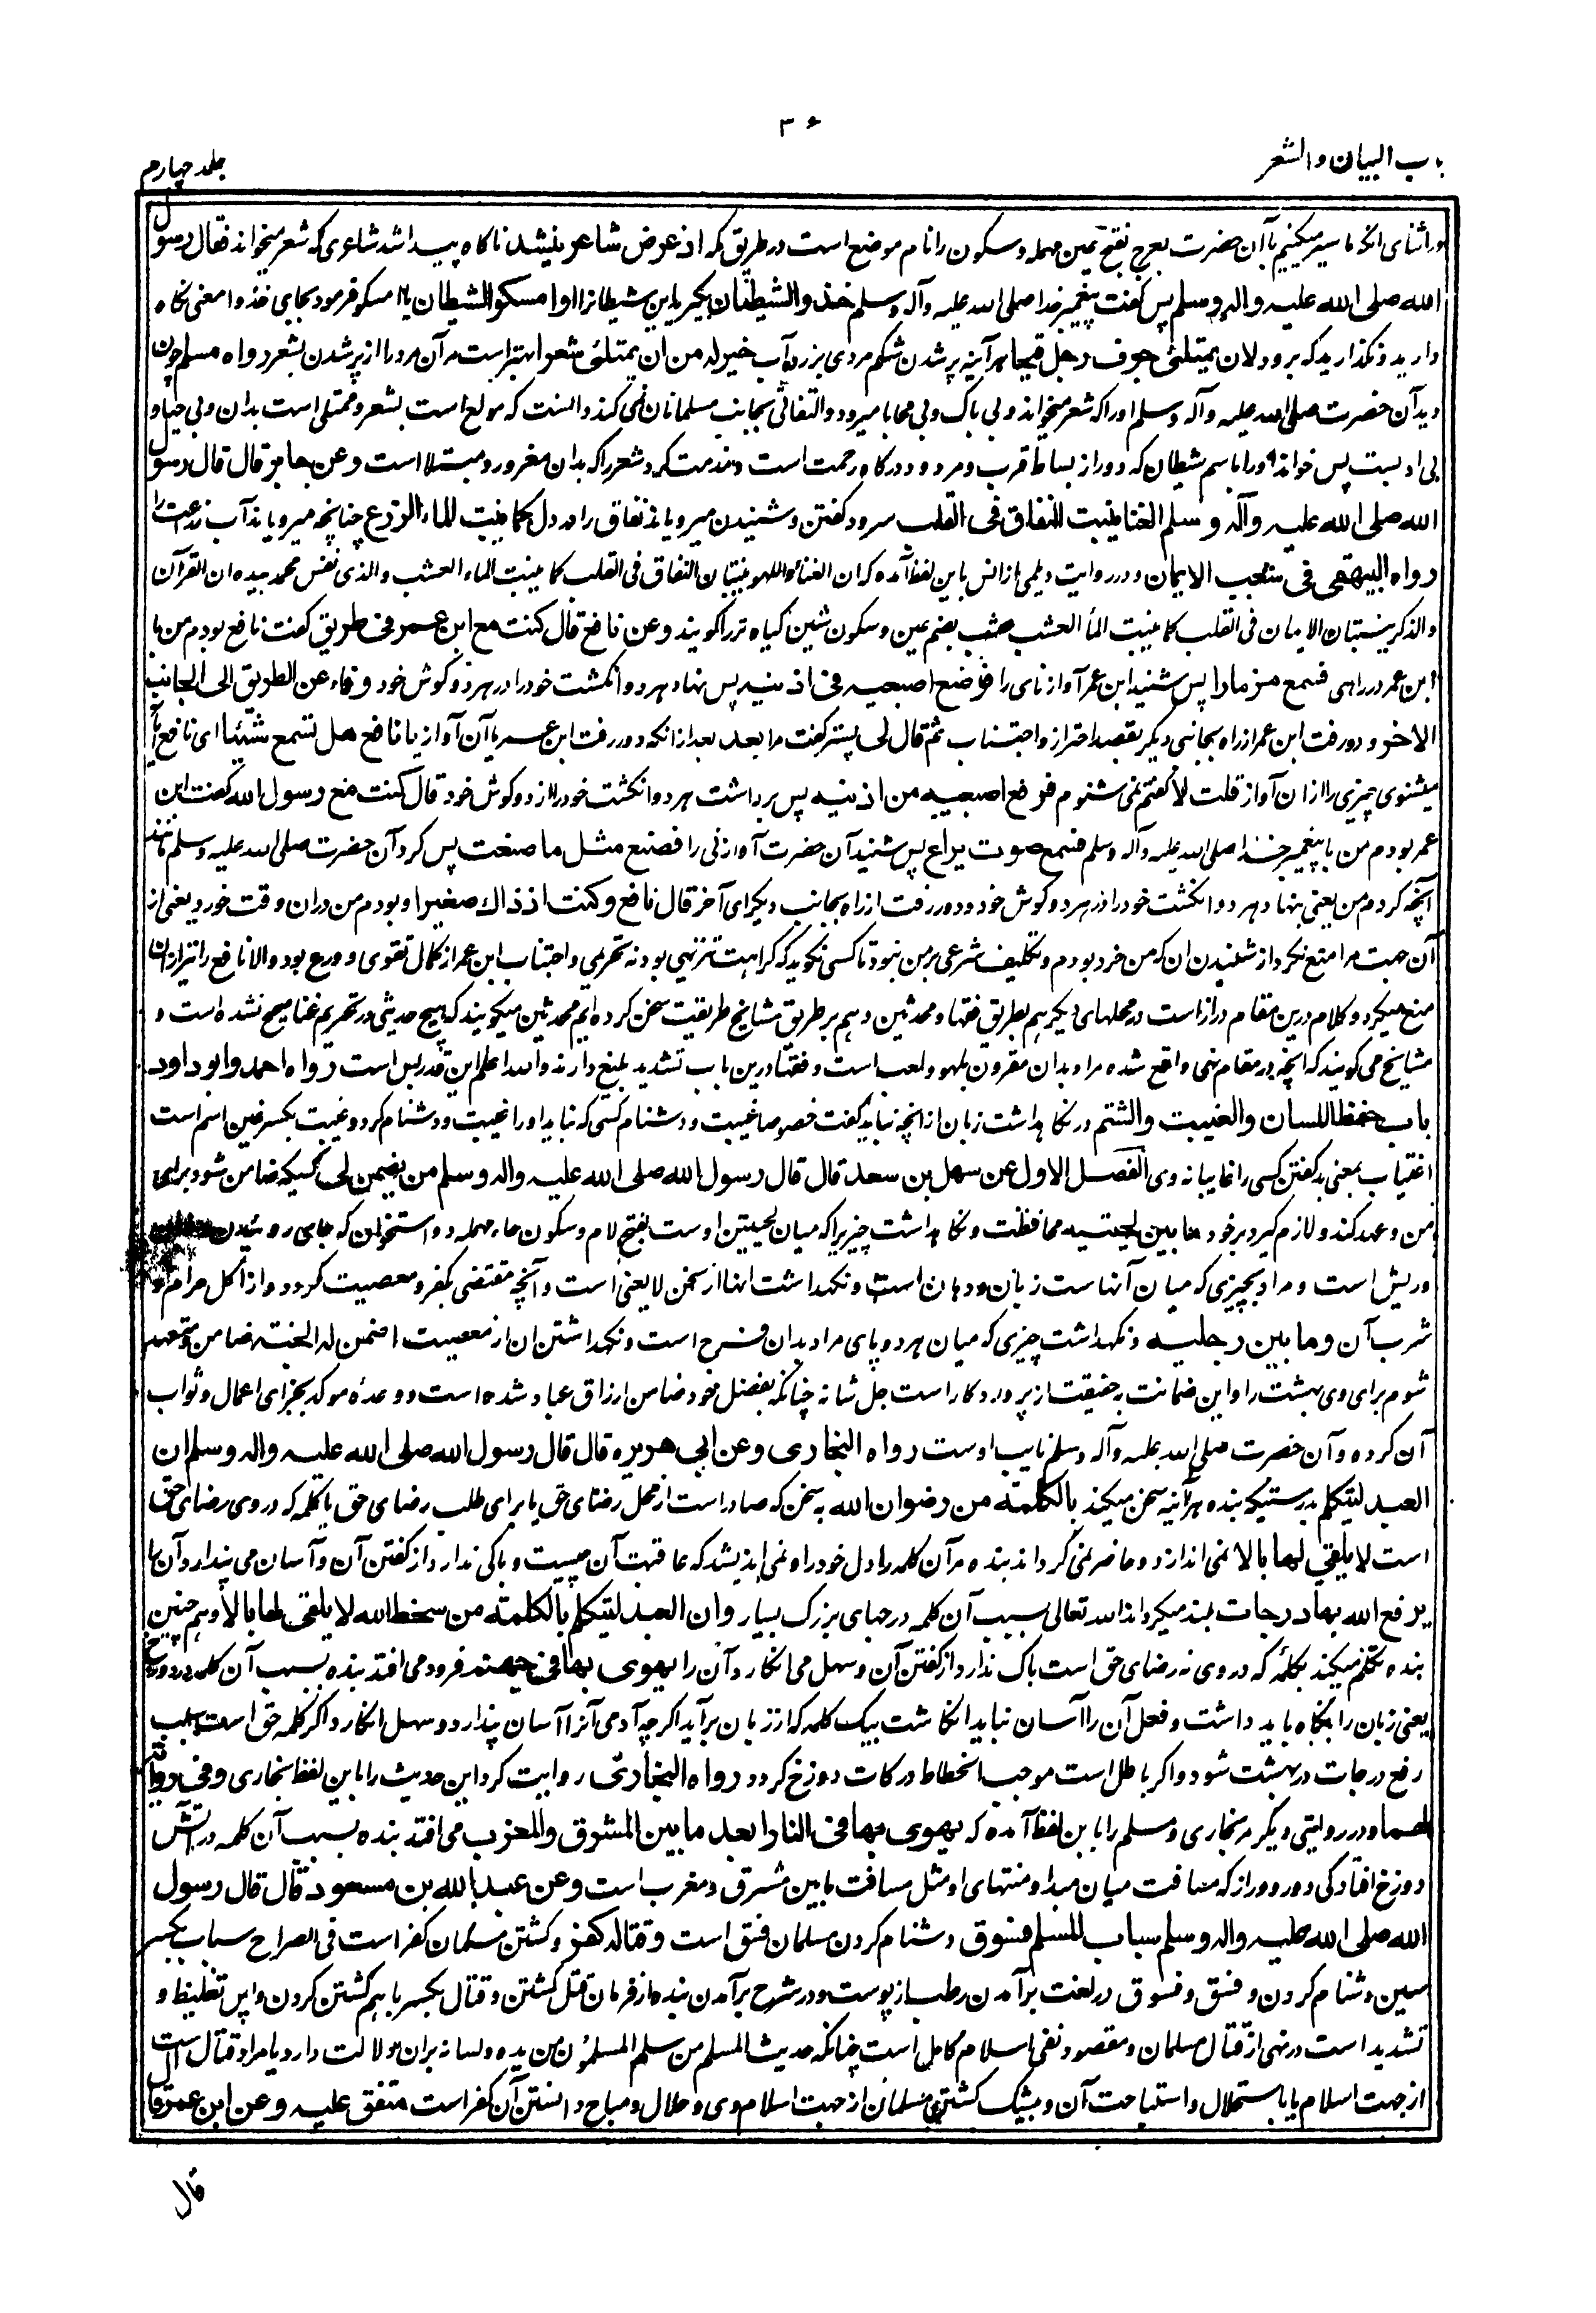 ۳۶
باب البیان والشعر
جلد چهارم
دراثنای آنکه ما سیر میکنیم با آن حضرت بعرج بفتح عین مهمله و سکون را نام موضع است در طریق مکه اذ عرض شاعر ینشد ناکاه پیدا شد شاعری که شعر میخواند فقال رسول
الله صلی الله علیه واله وسلم پس کفت پیغمبر خدا صلی الله علیه وآله وسلم خذوا الشیطان بکیرید این شیطانرا او امسکوا الشیطان یا امسکو فرمود بجای خذوا معنی نکاه
دارید و نکذارید که برود لان یمتلئ جوف رجل قیحا هر آینه پر شدن شکم مردی بزرداب خیر له من ان یمتلئ شعرا بهتر است مر آن مرد را از پر شدن بشعر رواه مسلم چون
دید آن حضرت صلی الله علیه وآله وسلم او را که شعر میخواند و بی باک و بی محابا میرود و التفاتی بجانب مسلمانان نمی کند دانست که مولع است بشعر و ممتلی است بدان و بی حیا و
بی ادبست پس خواند او را باسم شیطان که دور از بساط قرب و مردود درکاه رحمت است و مذمت کرد شعر را که بدان مغرور و مبتلا است وعن جابر قال قال رسول
الله صلی الله علیه وآله وسلم الغنا ینبت النفاق فی القلب سرود کفتن و شنیدن میرویاند نفاق را در دل کما ینبت الماء الزرع چنانچه میرویاند آب زراعت را
رواه البیهقی فی شعب الایمان و در روایت دیلمی از انس باین لفظ آمده که ان الغناء واللهو ینبتان النفاق فی القلب کما ینبت الماء العشب والذی نفس محمد بیده ان القرآن
والذکر ینبتان الایمان فی القلب کما ینبت الماء العشب عشب بضم عین و سکون شین کیاه تر را کویند وعن نافع قال کنت مع ابن عمر فی طریق کفت نافع بودم من با
ابن عمر در راهی فسمع مزمارا پس شنید ابن عمر آواز نای را فوضع اصبعیه فی اذنیه پس نهاد هر دو انکشت خود را در هر دو کوش خود وناء عن الطریق الی الجانب
الاخر و دور رفت ابن عمر از راه بجانبی دیکر بقصد احتراز و اجتناب ثم قال لی پستر کفت مرا بعد بعد از انکه دور رفت ابن عمر با آن آواز یا نافع هل تسمع شیئا ای نافع آیا
میشنوی چیزی را ازان آواز قلت لا کفتم نمی شنوم فرفع اصبعیه من اذنیه پس برداشت هر دو انکشت خود را از دو کوش خود قال کنت مع رسول الله کفت ابن
عمر بودم من با پیغمبر خدا صلی الله علیه وآله وسلم فسمع صوت یراع پس شنید آن حضرت آواز نی را فصنع مثل ما صنعت پس کرد آن حضرت صلی الله علیه وسلم مانند
آنچه کردم من یعنی بنهاد هر دو انکشت خود را در هر دو کوش خود و دور رفت از راه بجانب دیکر ای آخر قال نافع وکنت اذ ذاك صغیرا و بودم من دران وقت خورد یعنی از
آن جهت مرا منع نکرد از شنیدن ان که من خرد بودم و تکلیف شرعی بر من نبود تا کسی نکوید که کراهت تنزیهی بود نه تحریمی و اجتناب ابن عمر از کمال تقوی و ورع بود والا نافع را نیز ازان
منع میکرد و کلام درین مقام دراز است در محلهای دیکر هم بطریق فقها و محدثین و هم بر طریق مشایخ طریقت سخن کرده ایم محدثین میکویند که هیچ حدیثی در تحریم غنا صحیح نشده است و
مشایخ می کویند که انچه در مقام نهی واقع شده مراد بدان مقرون بلهو و لعب است و فقها درین باب تشدید بلیغ دارند والله اعلم این قدر بس است رواه احمد وابو داود
باب حفظ اللسان والغیبت والشتم در نکاهداشت زبان از انچه نباید کفت خصوصا غیبت و دشنام کسی که نباید او را غیبت و دشنام کرد و غیبت بکسر غین اسم است
اغتیاب بمعنی بد کفتن کسی را غایبانه وی الفصل الاول عن سهل بن سعد قال قال رسول الله صلی الله علیه واله وسلم من یضمن لی کسیکه ضامن شود برای
من و عهد کند و لازم کیرد بر خود ما بین لحییه محافظت و نکاهداشت چیزیرا که میان لحیتین اوست بفتح لام و سکون حاء مهمله دو استخوان که جای روئیدن
وریش است و مراد بچیزی که میان آنهاست زبان و دهان است و نکهداشت انها از سخن لایعنی است و آنچه مقتضی بکفر و معصیت کردد و از اکل حرام و
شرب آن وما بین رجلیه و نکهداشت چیزی که میان هر دو پای مراد بدان فرج است و نکهداشتن ان از معصیت اضمن له الجنة ضامن و متعهد
شوم برای وی بهشت را و این ضمانت بحقیقت از پروردکار است جل شانه چنانکه بفضل خود ضامن ارزاق عباد شده است و وعدۀ موکد بجزای اعمال و ثواب
آن کرده و آن حضرت صلی الله علیه وآله وسلم نایب اوست رواه البخاری وعن ابی هریره قال قال رسول الله صلی الله علیه واله وسلم ان
العبد لیتکلم بدرستیکه بنده هر آینه سخن میکند بالکلمة من رضوان الله به سخن که صادر است از محل رضای حق یا برای طلب رضای حق یا کلمه که در وی رضای حق
است لا یلقی لها بالا نمی اندازد و حاضر نمی کرداند بنده مر آن کلمه را دل خود را و نمی اندیشد که عاقبت آن چیست و باکی ندارد از کفتن آن و آسان می پندارد آن را
یرفع الله بها درجات بلند میکرداند الله تعالی بسبب آن کلمه درجهای بزرک بسیار وان العبد لیتکلم بالکلمة من سخط الله لا یلقی لها بالا و هم چنین
بنده تکلم میکند بکلمۀ که در وی نه رضای حق است باک ندارد از کفتن آن و سهل می انکارد آن را یهوی بها فی جهنم فرود می افتد بنده بسبب آن کلمه در دوزخ
یعنی زبان را نکاه باید داشت و فعل آن را آسان نباید انکاشت بیک کلمه که از زبان برآید اکرچه آدمی آنرا آسان پندارد و سهل انکارد اکر کلمه حق است سبب
رفع درجات در بهشت شود و اکر باطل است موجب انحطاط درکات دوزخ کردد رواه البخاری روایت کرد این حدیث را باین لفظ بخاری وفی روایة
لهما و در روایتی دیکر مر بخاری و مسلم را باین لفظ آمده که یهوی بها فی النار ابعد ما بین المشرق والمغرب می افتد بنده بسبب آن کلمه در آتش
دوزخ افتادکی دور و دراز که مسافت میان مبدا و منتهای او مثل مسافت مابین مشرق و مغرب است وعن عبد الله بن مسعود قال قال رسول
الله صلی الله علیه واله وسلم سباب المسلم فسوق دشنام کردن مسلمان فسق است وقتاله کفر و کشتن مسلمان کفر است فی الصراح سباب بکسر
سین دشنام کردن و فسق و فسوق در لغت برآمدن رطب از پوست و در شرح برآمدن بنده از فرمان قتل کشتن و قتال بکسر با هم کشتن کردن و این تغلیظ و
تشدید است در نهی از قتال مسلمان و مقصود نفی اسلام کامل است چنانکه حدیث المسلم من سلم المسلمون من یده ولسانه بران دلالت دارد یا مراد قتال است
از جهت اسلام یا باستحلال و استباحت آن و بیشک کشتن مسلمان از جهت اسلام وی و حلال و مباح دانستن آن کفر است متفق علیه وعن ابن عمر قال
قال